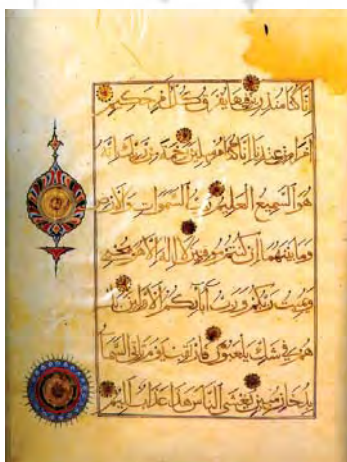 انا كنا منذرين فيها يفرق كل امر حكيم
امرا من عندنا انا كنا مرسلين رحمة من ربك انه
هو السميع العليم رب السموات والارض
وما بينهما ان كنتم موقنين لا اله الا هو يحيي
ويميت ربكم ورب آبائكم الاولين بل
هم في شك يلعبون فارتقب يوم تاتي السماء
بدخان مبين يغشى الناس هذا عذاب اليم